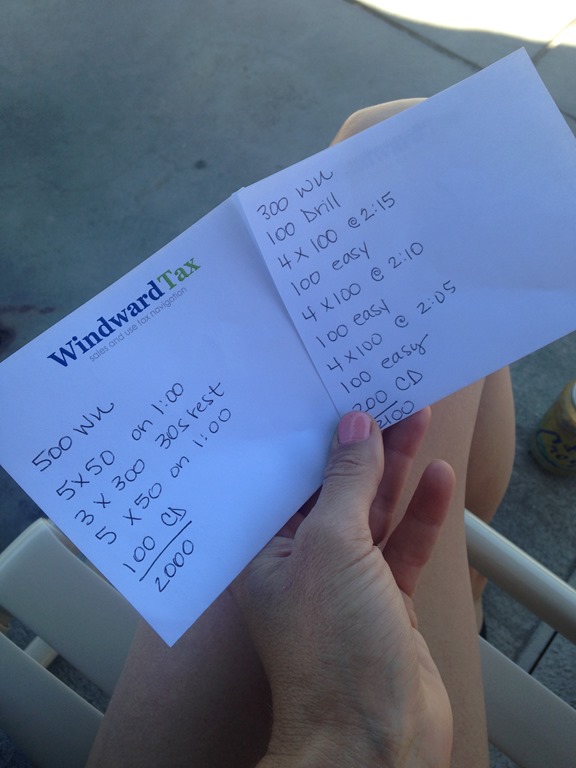 WindwardTax
sales and use tax navigation
500 WU
5 x 50 on 1:00
3 x 300 30s rest
5 x 50 on 1:00
100 CD
2000
300 WU
100 Drill
4 x 100 @ 2:15
100 easy
4 x 100 @ 2:10
100 easy
4 x 100 @ 2:05
100 easy
200 CD
2100